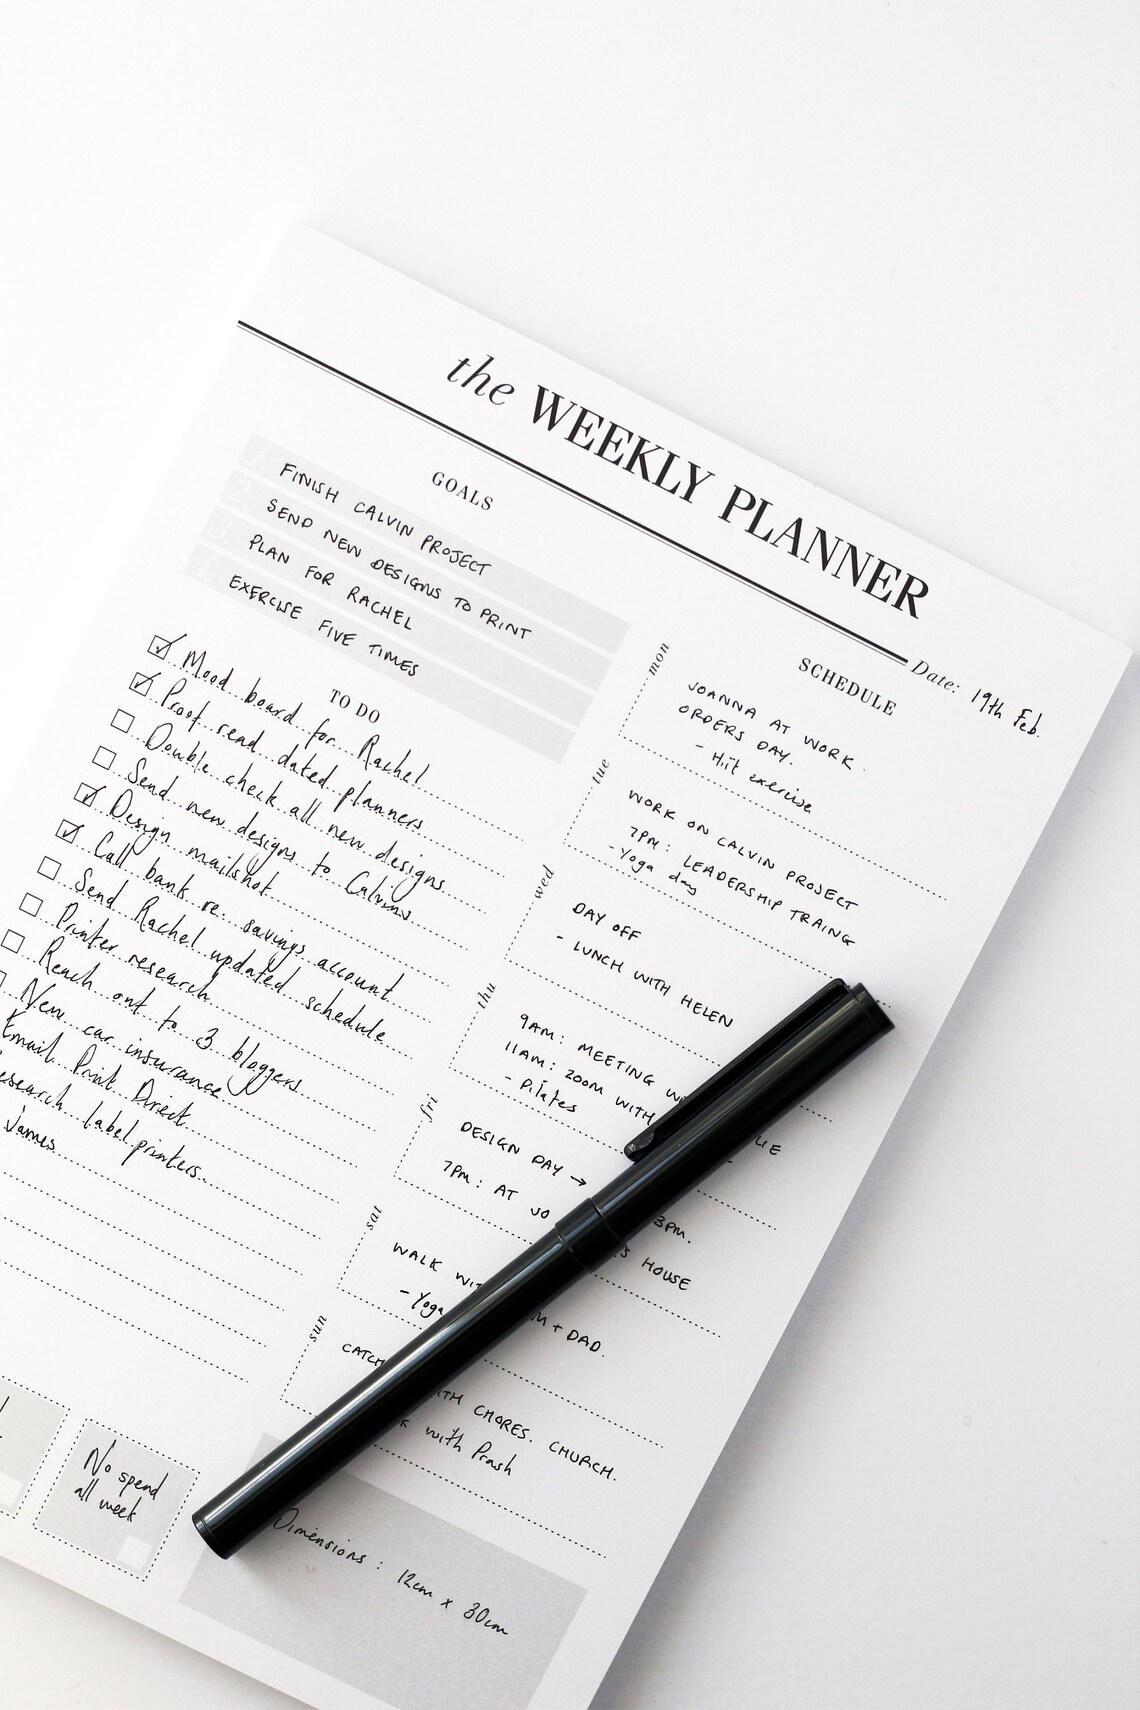 the WEEKLY PLANNER
Date: 19th Feb.
GOALS
1. FINISH CALVIN PROJECT
2. SEND NEW DESIGNS TO PRINT
3. PLAN FOR RACHEL
4. EXERCISE FIVE TIMES
TO DO
Mood board for Rachel
Proof read dated planners
Double check all new designs
Send new designs to Calvins
Design mailshot
Call bank re. savings account
Send Rachel updated schedule
Printer research
Reach out to 3 bloggers
New car insurance
Email Print Direct
esearch label printers
James
No spend
all week
SCHEDULE
mon
JOANNA AT WORK.
ORDERS DAY.
- Hiit exercise
tue
WORK ON CALVIN PROJECT
7PM: LEADERSHIP TRAING
- Yoga day
wed
DAY OFF
- LUNCH WITH HELEN
thu
9AM: MEETING W LIE
11AM: ZOOM WITH
- Pilates
fri
DESIGN DAY → 3PM.
7PM: AT JO S HOUSE
sat
WALK WIT M + DAD.
- Yoga
sun
CATCH ITH CHORES. CHURCH.
k with Prash
Dimensions: 12cm x 30cm